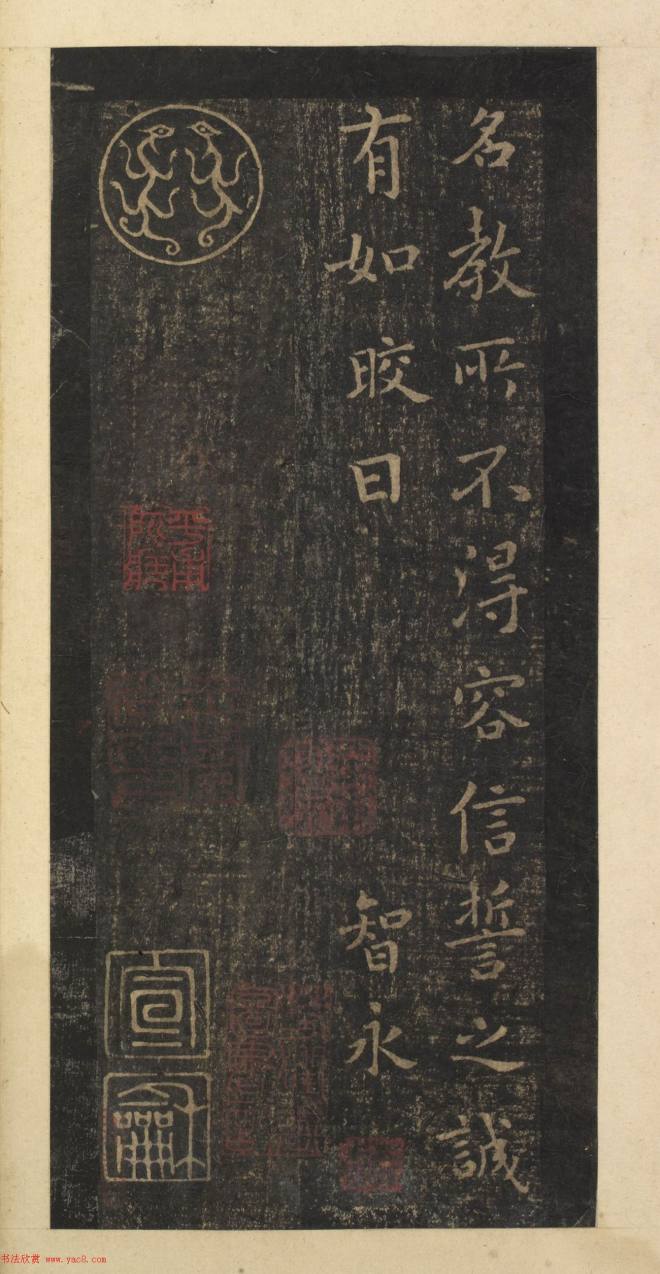 名教所不得容信誓之誠
有如晈日　智永
宣
龢
书法欣赏 www.yac8.com